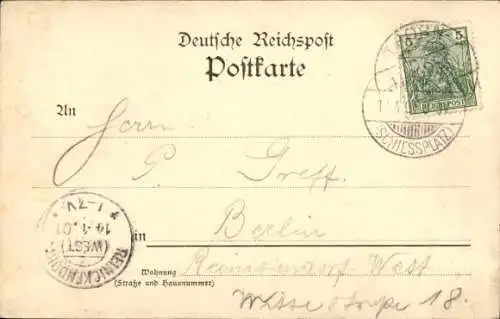 Deutsche Reichspost
Postkarte
5 5
REICHSPOST
(SCHIESSPLATZ)
An
Herrn
P. Greff.
in Berlin
Wohnung Reinickendorf-West
(Straße und Hausnummer)
18.
REINICKENDORF
(WEST)
14.1.01
1-7V.